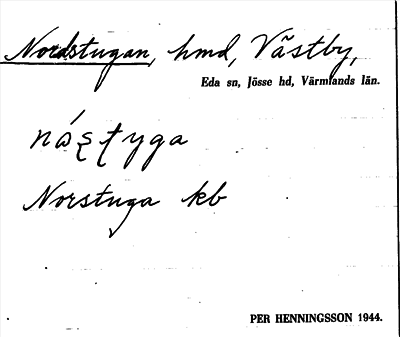 Nordstugan, hmd, Västby,
Eda sn, Jösse hd, Värmlands län.
Norstuga kb
PER HENNINGSSON 1944.